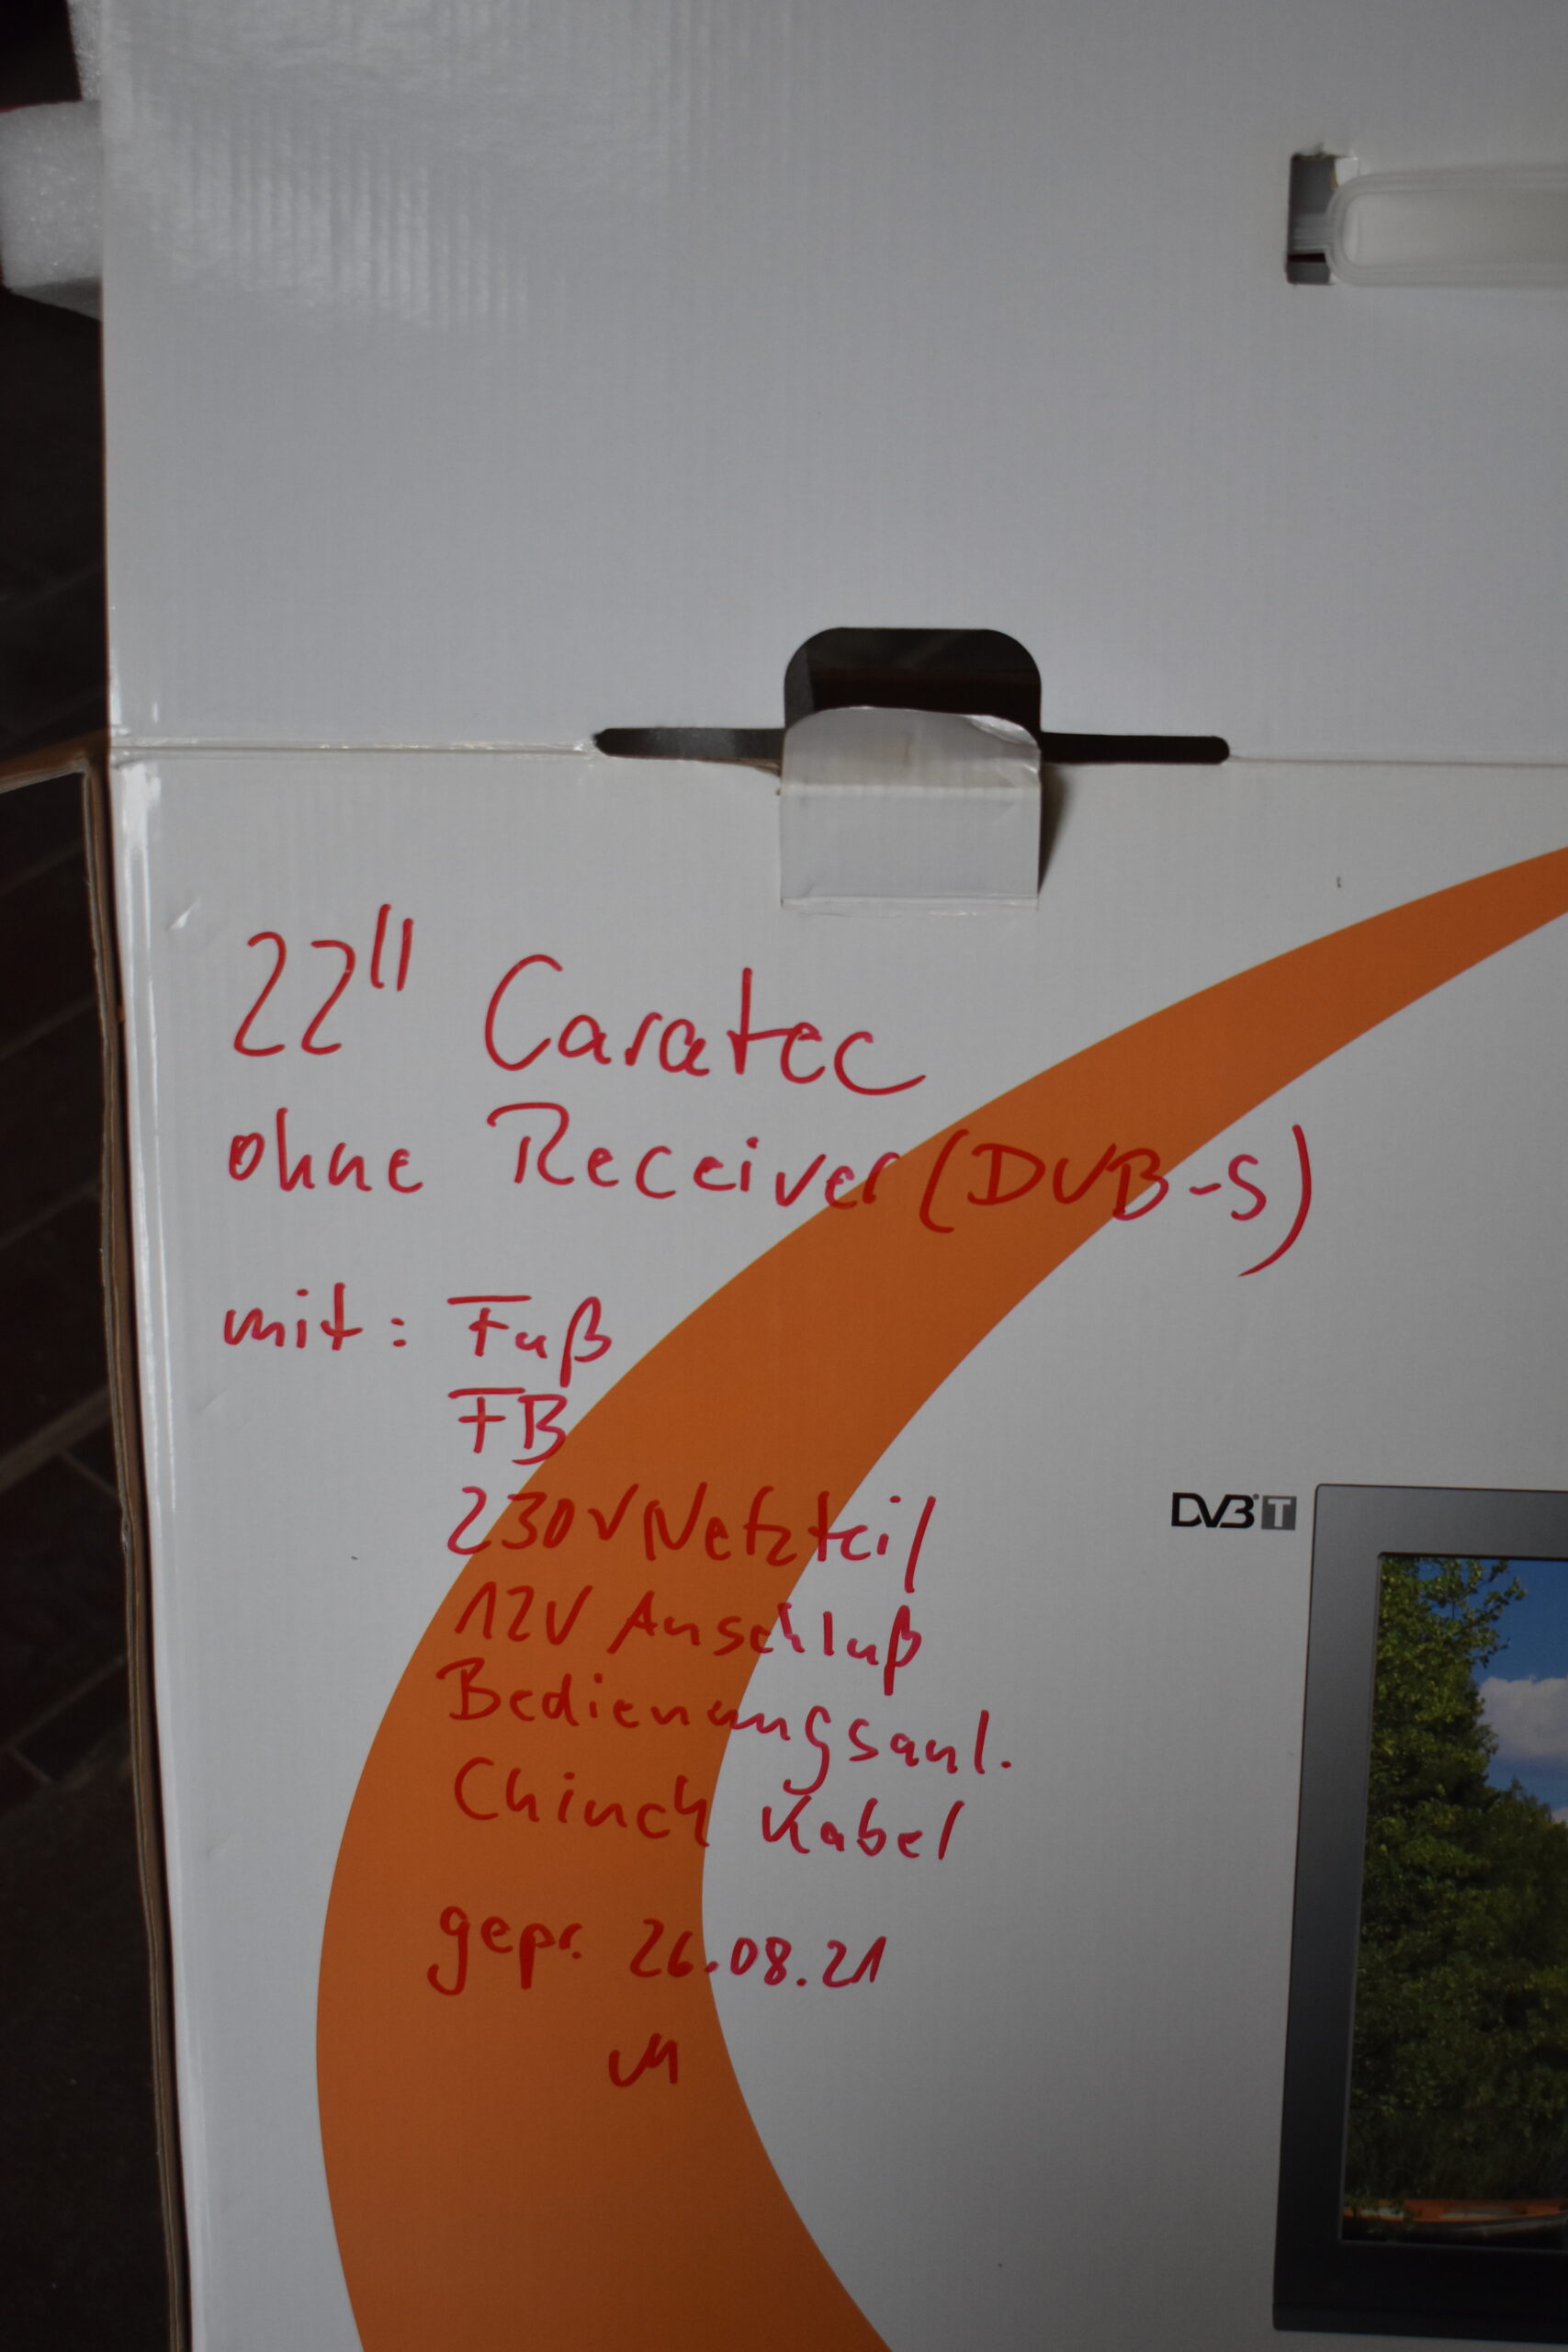 22" Caratec
ohne Receiver (DVB-S)
mit: Fuß
FB
230V Netzteil
12V Anschluß
Bedienungsanl.
Chinch Kabel
gepr. 26.08.21
DVB T